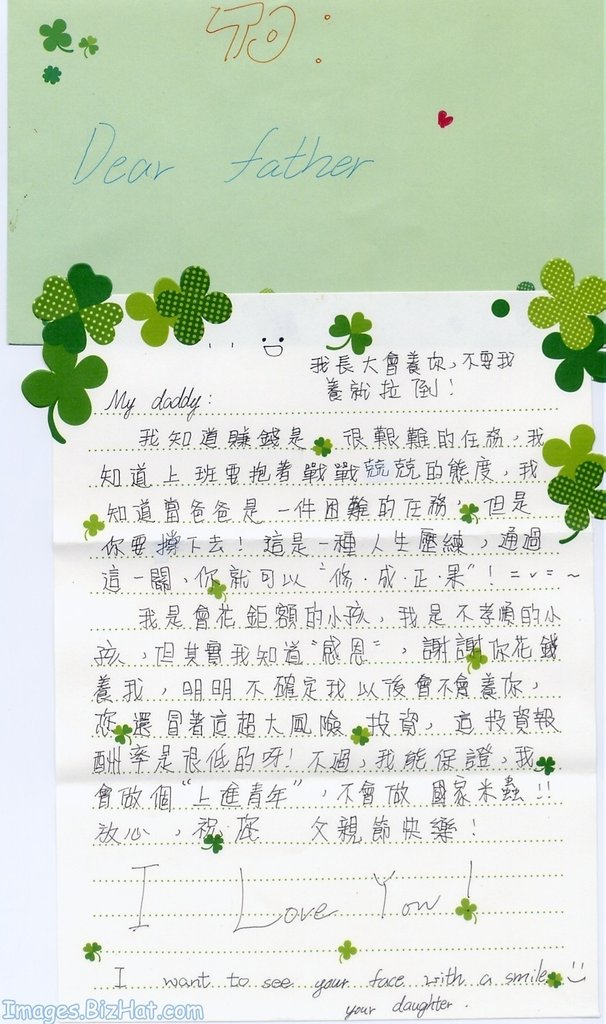 TO:
Dear father
我長大會養你，不要我
養就拉倒！
My daddy:
我知道賺錢是 很艱難的任務，我
知道上班要抱著戰戰兢兢的態度，我
知道當爸爸是一件困難的任務，但是
你要撐下去！這是一種人生歷練，通過
這一關，你就可以“修．成．正．果”！=v=~
我是會花鉅額的小孩，我是不孝順的小
孩，但其實我知道“感恩”，謝謝你花錢
養我，明明不確定我以後會不會養你，
您還冒著這超大風險 投資，這投資報
酬率是很低的呀！不過，我能保證，我
會做個“上進青年”，不會做 國家米蟲!!
放心，祝您 父親節快樂！
I Love You!
I want to see your face with a smile
your daughter.
Images.BizHat.com